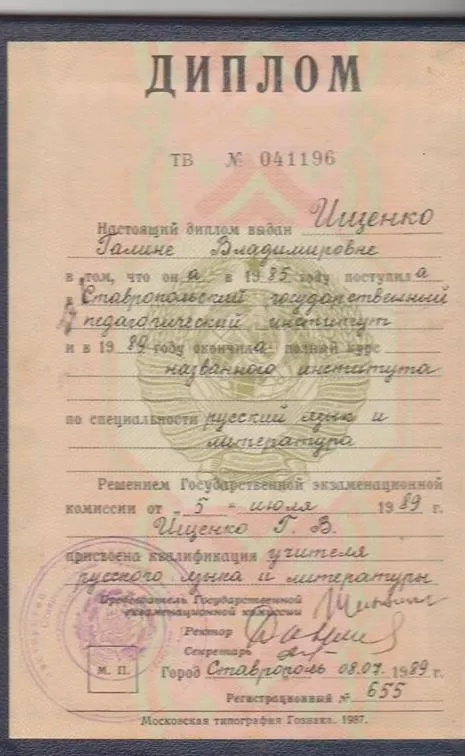 ДИПЛОМ
ТВ № 041196
Настоящий диплом выдан Ищенко
Галине Владимировне
в том, что она в 1985 году поступила
в Ставропольский государственный
педагогический институт
и в 1989 году окончила полный курс
названного института
по специальности русский язык и
литература
Решением Государственной экзаменационной
комиссии от „5“ июля 1989 г.
Ищенко Г. В.
присвоена квалификация учителя
русского языка и литературы
Председатель Государственной
экзаменационной комиссии
Ректор
Секретарь
М. П.
Город Ставрополь 08.07. 1989 г.
Регистрационный № 655
Московская типография Гознака. 1987.